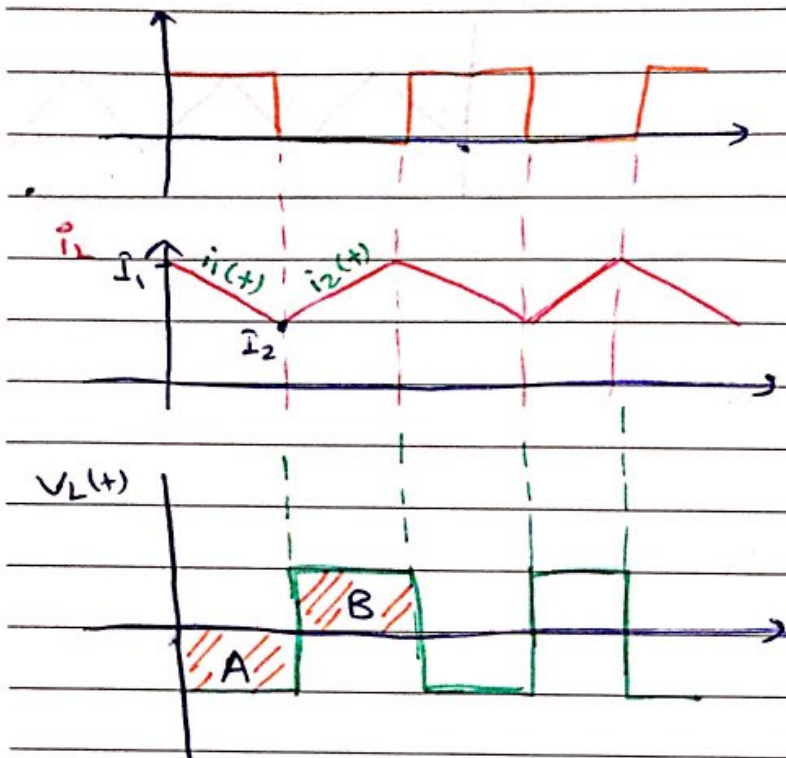 i_L
I₁
i₁(t)
i₂(t)
I₂
V_L(t)
B
A